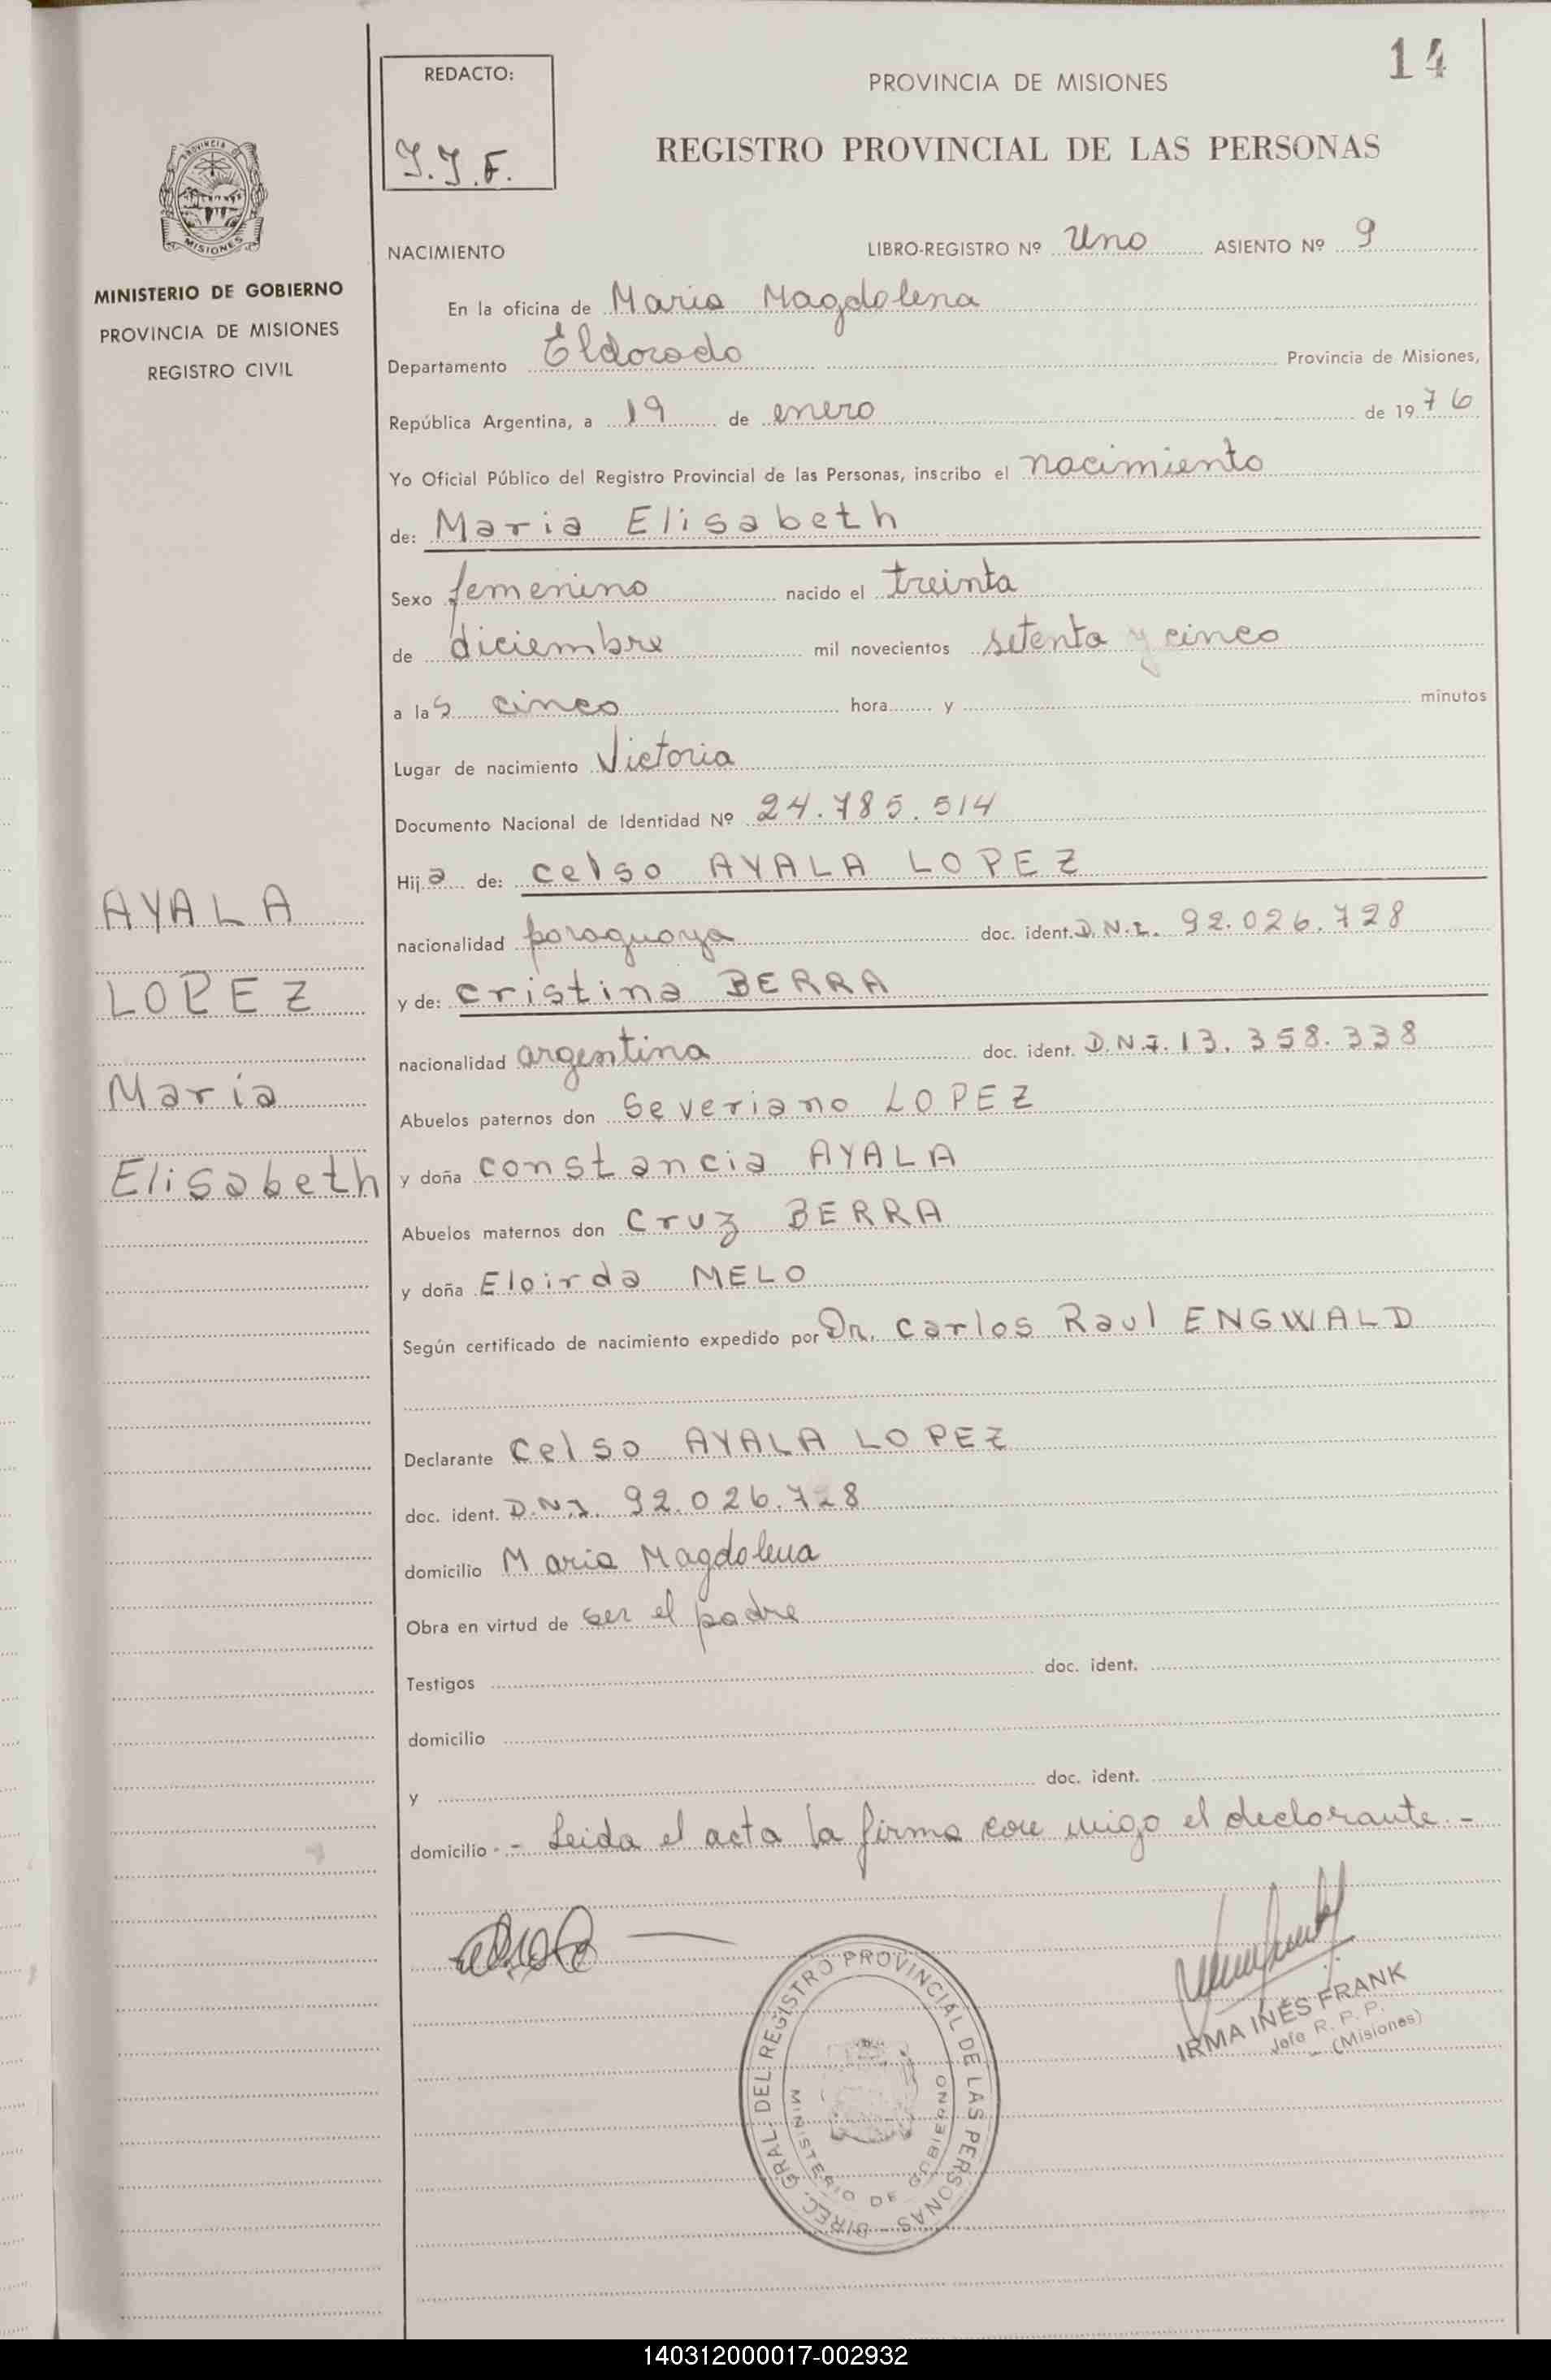 14
REDACTO:
I.I.F.
PROVINCIA DE MISIONES
REGISTRO PROVINCIAL DE LAS PERSONAS
PROVINCIA DE
MISIONES
MINISTERIO DE GOBIERNO
PROVINCIA DE MISIONES
REGISTRO CIVIL
NACIMIENTO LIBRO-REGISTRO Nº Uno ASIENTO Nº 9
En la oficina de Maria Magdalena
Departamento Eldorado Provincia de Misiones,
República Argentina, a 19 de enero de 1976
Yo Oficial Público del Registro Provincial de las Personas, inscribo el nacimiento
de: Maria Elisabeth
Sexo femenino nacido el treinta
de diciembre mil novecientos setenta y cinco
a las cinco hora y minutos
Lugar de nacimiento Victoria
Documento Nacional de Identidad Nº 24.785.514
Hija de: Celso AYALA LOPEZ
nacionalidad paraguaya doc. ident. D.N.I. 92.026.728
y de: Cristina BERRA
nacionalidad argentina doc. ident. D.N.I. 13.358.338
Abuelos paternos don Severiano LOPEZ
y doña Constancia AYALA
Abuelos maternos don Cruz BERRA
y doña Eloirda MELO
Según certificado de nacimiento expedido por Dr. Carlos Raul ENGWALD
Declarante Celso AYALA LOPEZ
doc. ident. D.N.I. 92.026.728
domicilio Maria Magdalena
Obra en virtud de ser el padre
Testigos doc. ident.
domicilio
y doc. ident.
domicilio - - Leida el acta la firma con migo el declarante. -
AYALA
LOPEZ
Maria
Elisabeth
DIREC. GRAL. DEL REGISTRO PROVINCIAL DE LAS PERSONAS
MINISTERIO DE GOBIERNO
IRMA INÉS FRANK
Jefe R. P. P.
(Misiones)
140312000017-002932